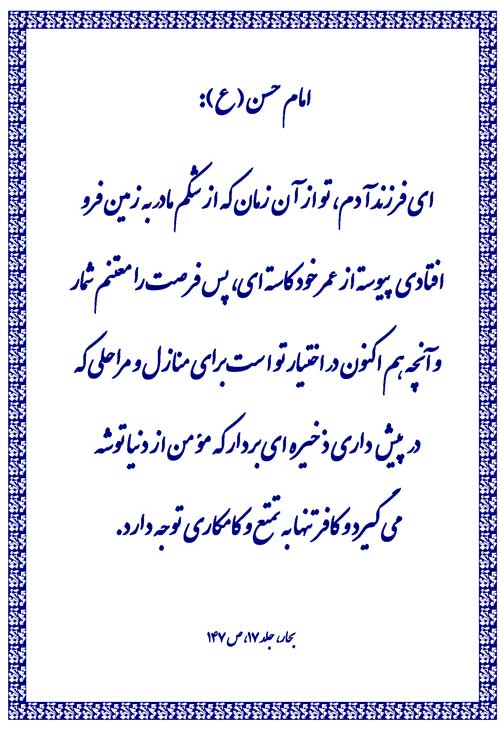 امام حسن (ع):
ای فرزند آدم، تو از آن زمان که از شکم مادر به زمین فرو
افتادی پیوسته از عمر خود کاسته ای، پس فرصت را مغتنم شمار
و آنچه هم اکنون در اختیار تو است برای منازل و مراحلی که
در پیش داری ذخیره ای بردار که مؤمن از دنیا توشه
می گیرد و کافر تنها به تمتع و کامکاری توجه دارد.
بحار، جلد ۱۷، ص ۱۴۷